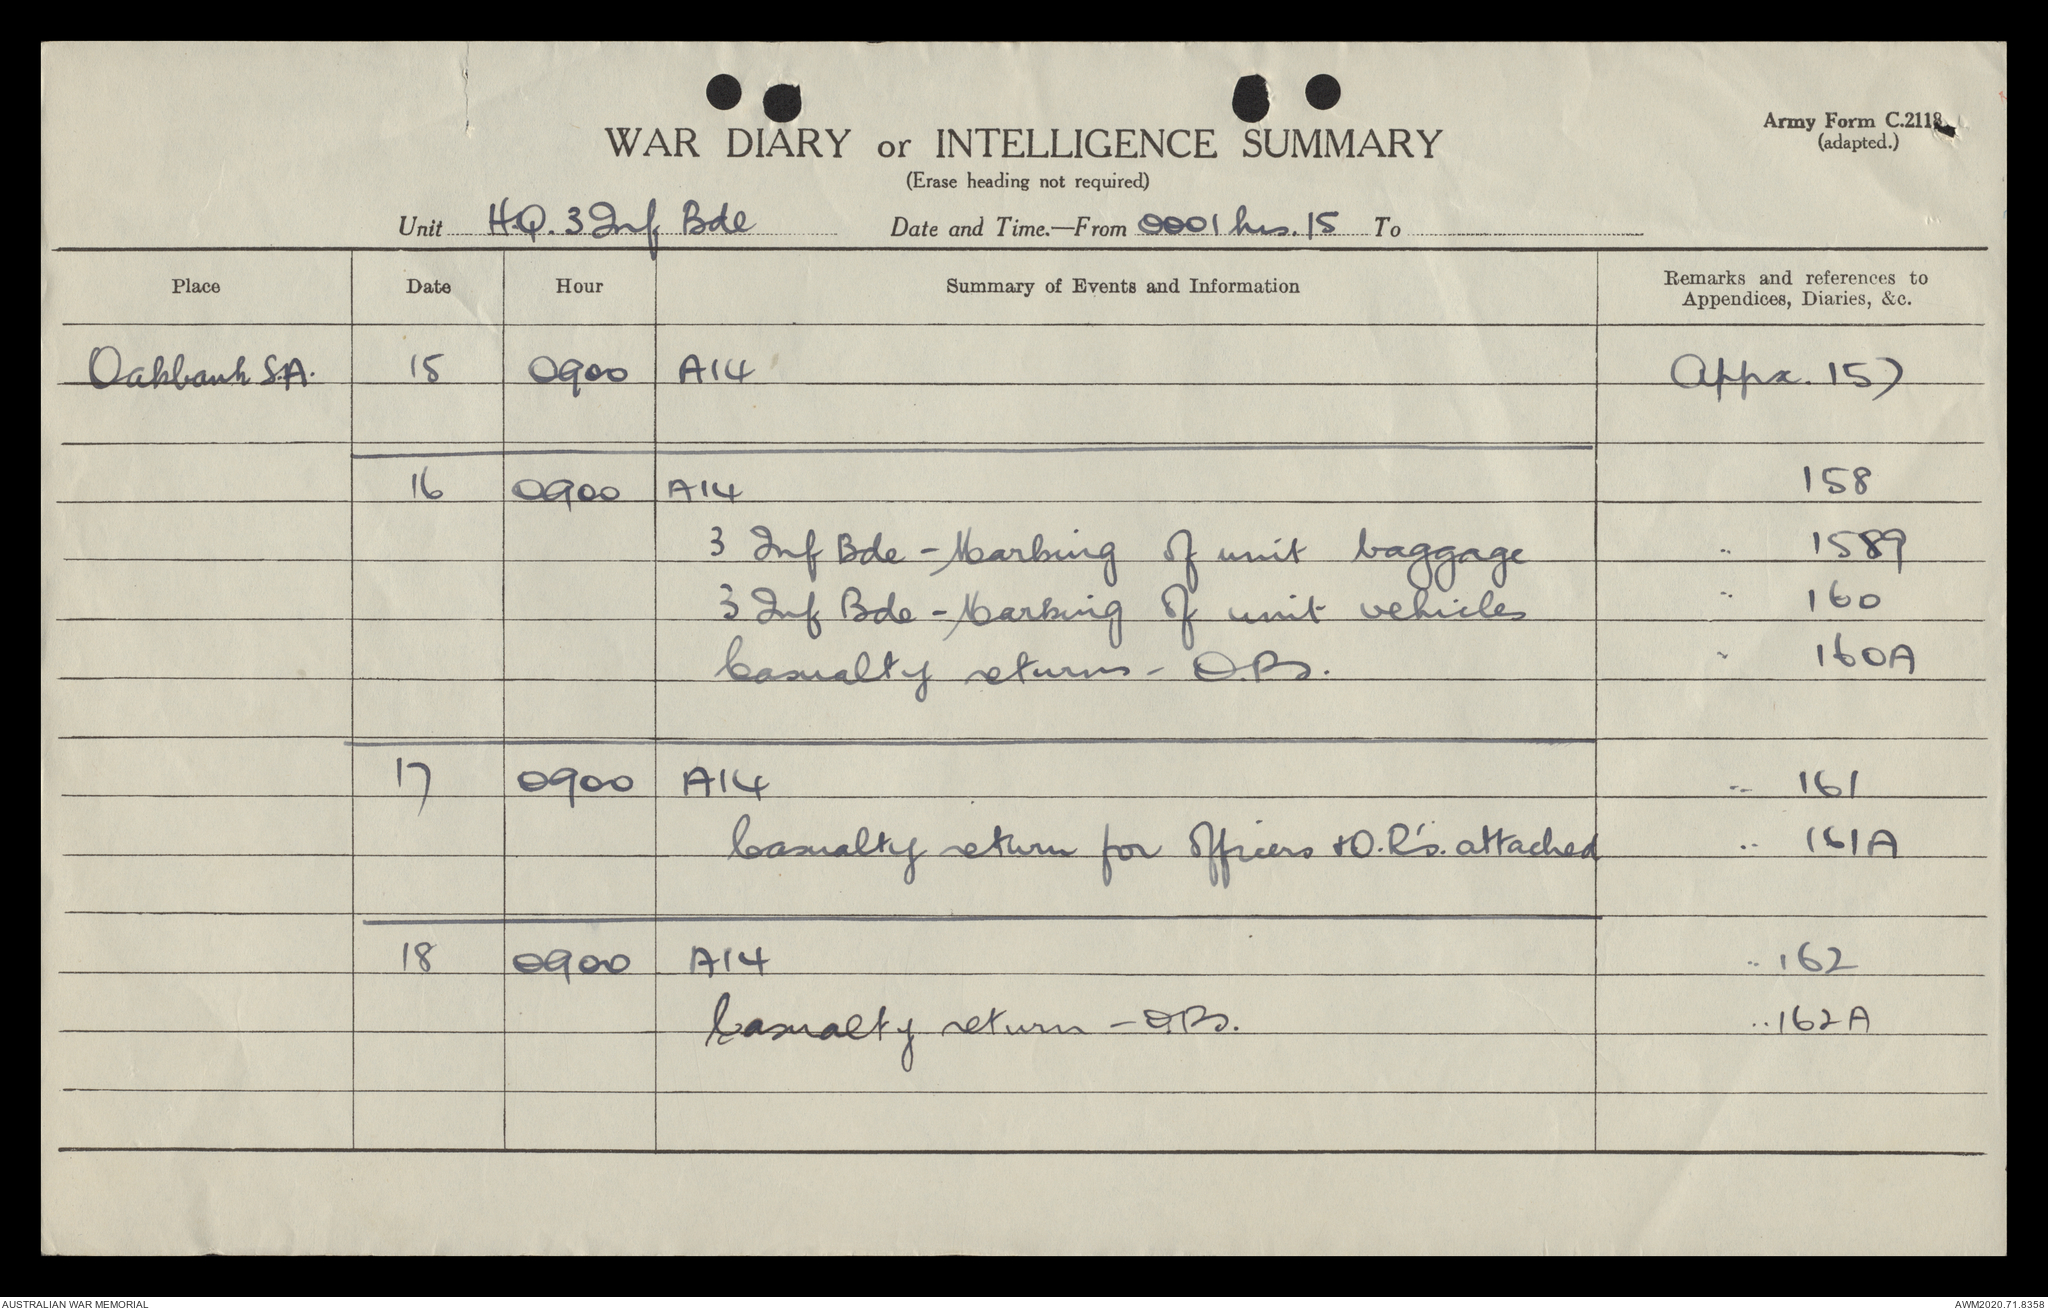 Army Form C.2118.
(adapted.)
WAR DIARY or INTELLIGENCE SUMMARY
(Erase heading not required)
Unit H.Q. 3 Inf Bde Date and Time.—From 0001 hrs. 15 To
Place Date Hour Summary of Events and Information Remarks and references to Appendices, Diaries, &c.
Oakbank S.A. 15 0900 A14 Appx. 157
16 0900 A14 158
3 Inf Bde - Marking of unit baggage " 159
3 Inf Bde - Marking of unit vehicles " 160
Casualty returns - O.Rs. " 160A
17 0900 A14 " 161
Casualty return for Officers + O.R's. attached " 161A
18 0900 A14 " 162
Casualty return - O.Rs. " 162A
AUSTRALIAN WAR MEMORIAL AWM2020.71.8358